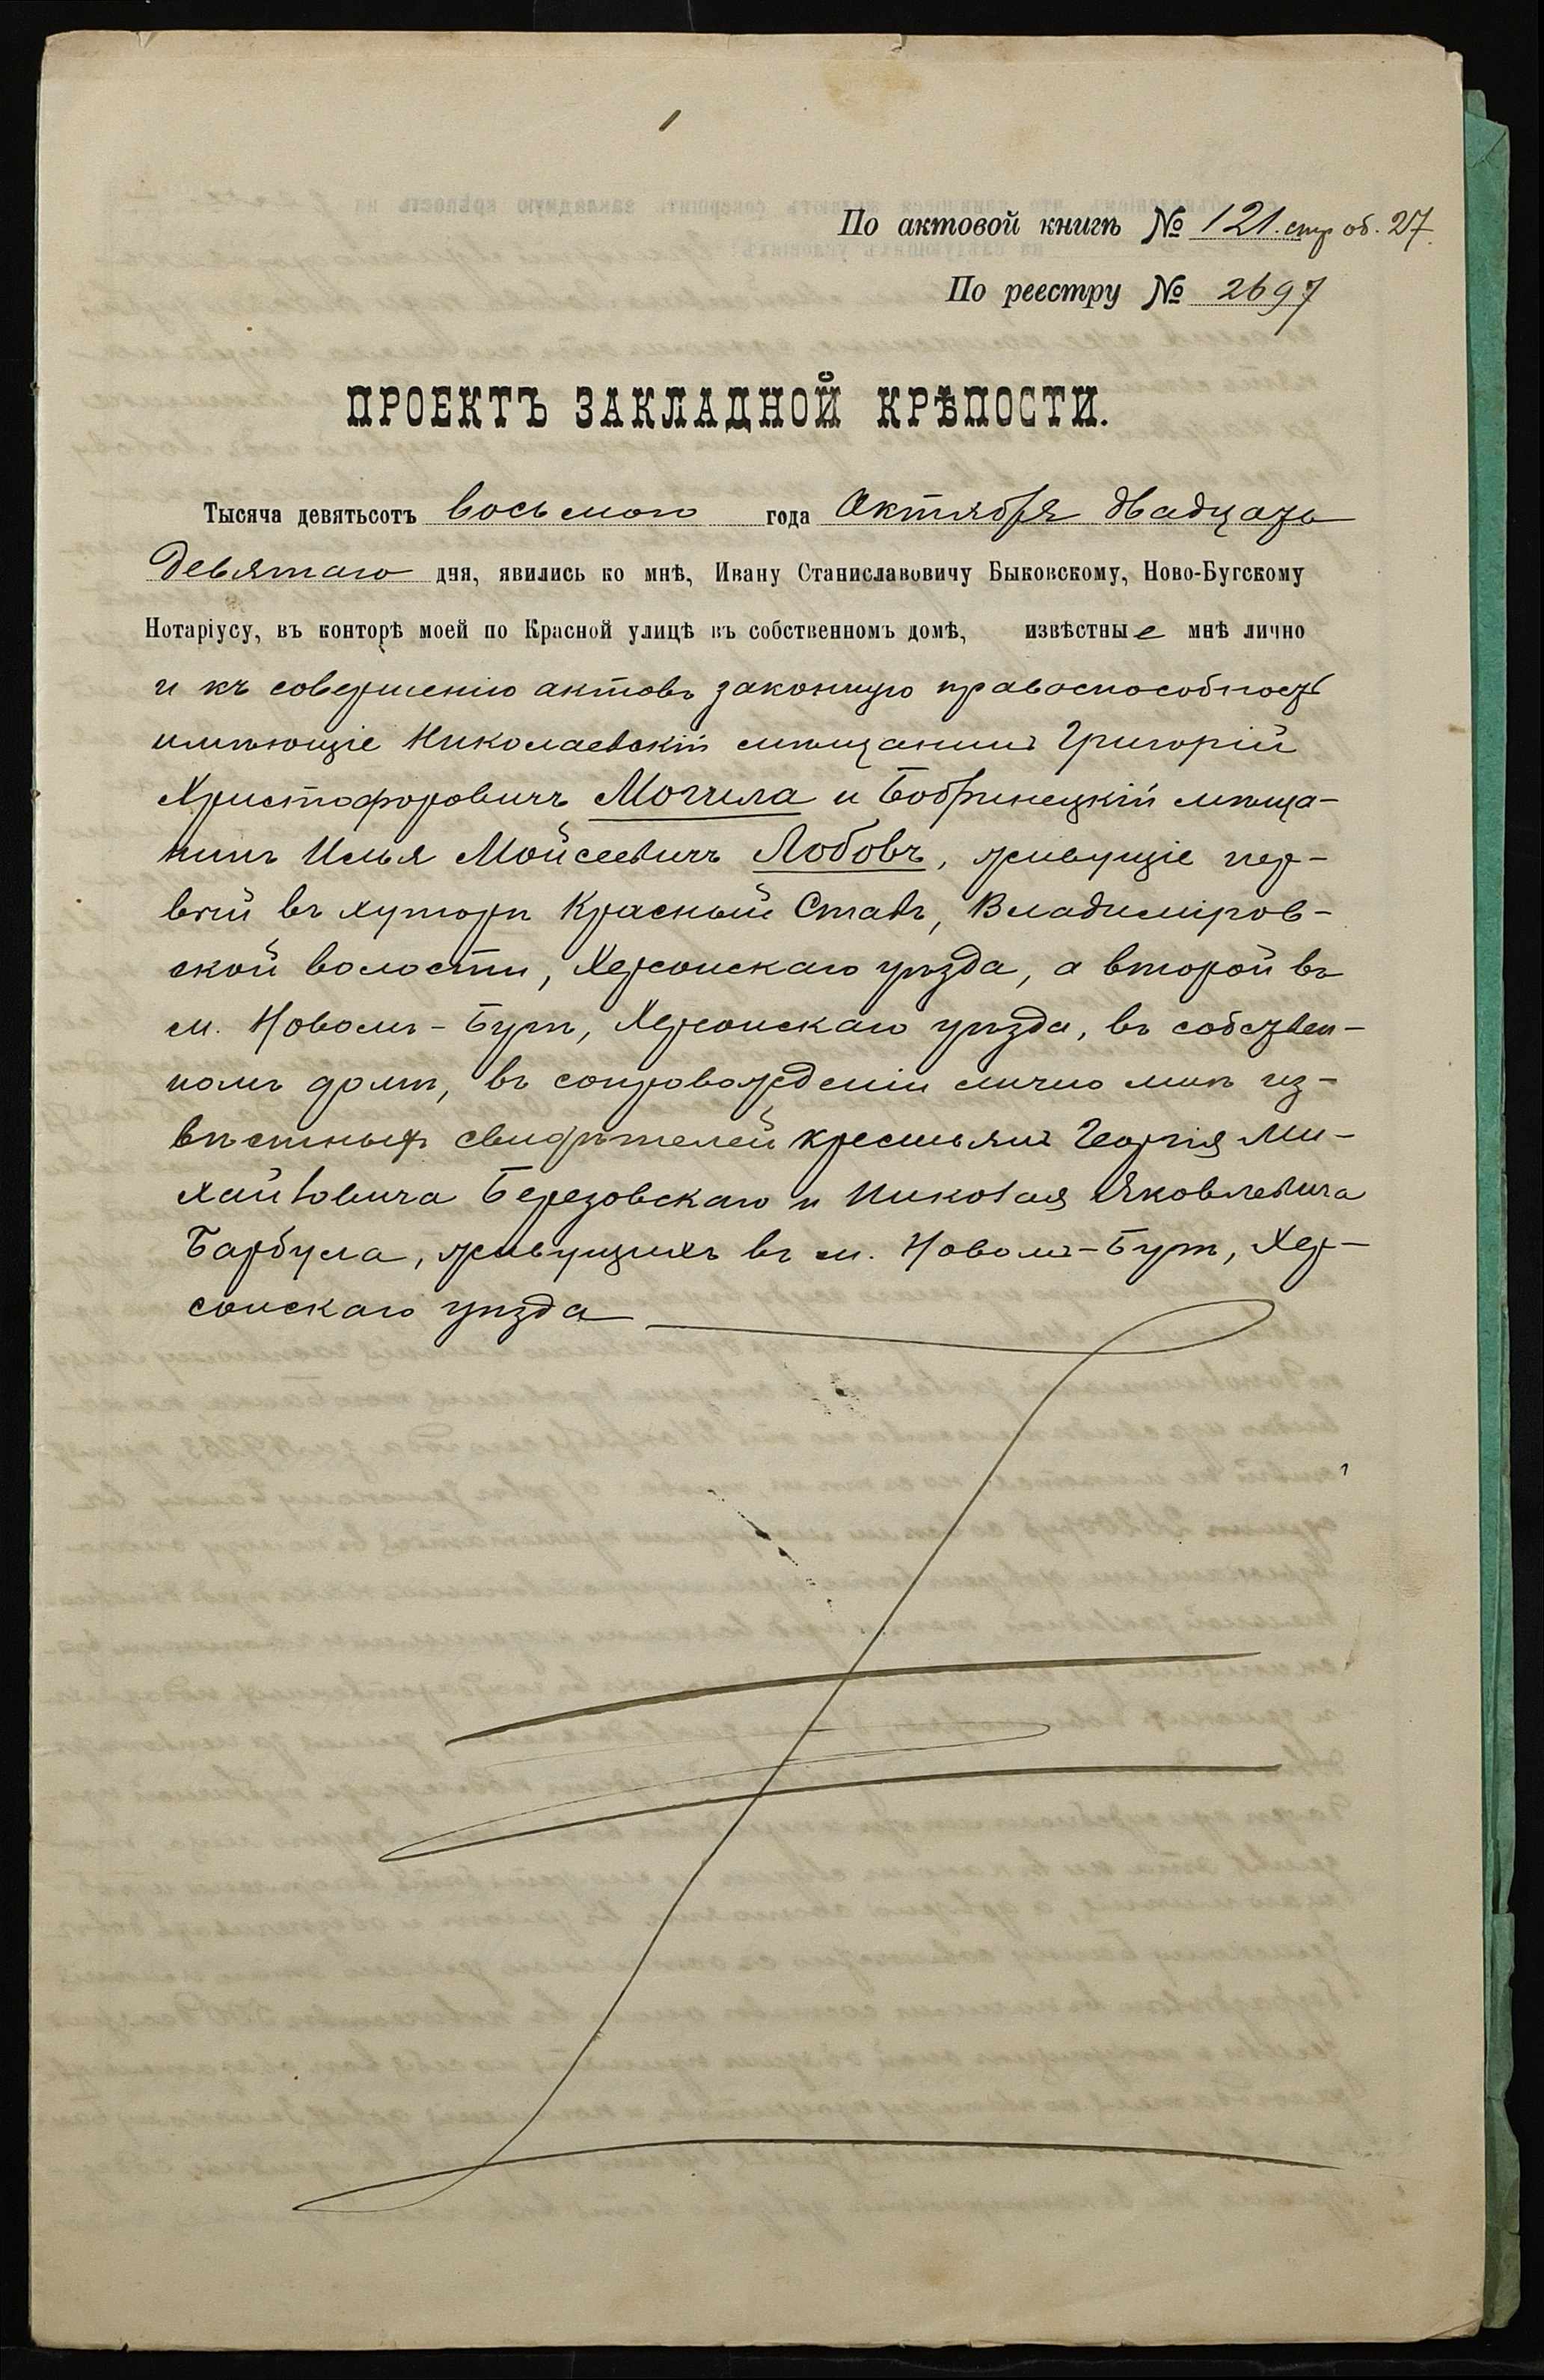 1
По актовой книгѣ № 121. стр об. 27
По реестру № 2697
ПРОЕКТЪ ЗАКЛАДНОЙ КРѢПОСТИ.
Тысяча девятьсотъ восьмого года Октября двадцать
девятаго дня, явились ко мнѣ, Ивану Станиславовичу Быковскому, Ново-Бугскому
Нотаріусу, въ конторѣ моей по Красной улицѣ въ собственномъ домѣ, извѣстные мнѣ лично
и къ совершенію актовъ законную правоспособность
имѣющіе Николаевскій мѣщанинъ Григорій
Христофоровичъ Могила и Бобринецкій мѣща-
нинъ Илья Мойсеевичъ Лобовъ, живущіе пер-
вый въ хуторѣ Красный Ставъ, Владиміров-
ской волости, Херсонскаго уѣзда, а второй въ
м. Новомъ-Бугѣ, Херсонскаго уѣзда, въ собствен-
номъ домѣ, въ сопровожденіи лично мнѣ из-
вѣстныхъ свидѣтелей крестьянъ Георгія Ми-
хайловича Березовскаго и Николая Яковлевича
Барбула, живущихъ въ м. Новомъ-Бугѣ, Хер-
сонскаго уѣзда